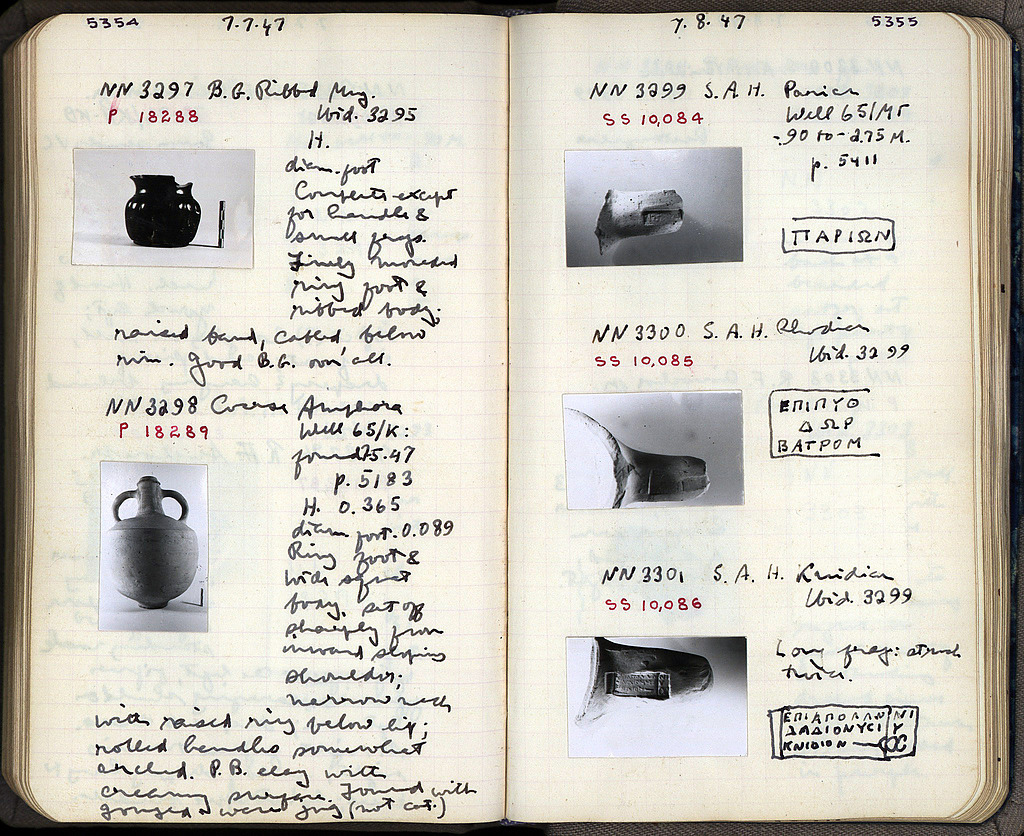 5354 7.7.47
NN 3297 B.G. Ribbed Mug.
P 18288 Ibid. 3295
H.
diam. foot
Complete except
for handle &
small frags.
Finely moulded
ring foot &
ribbed body;
raised band, cabled, below
rim. Good B.G. over all.
NN 3298 Coarse Amphora
P 18289 Well 65/K:
found 7.5.47
p. 5183
H. 0.365
diam. foot. 0.089
Ring foot &
wide squat
body, set off
sharply from
inward sloping
shoulder;
narrow neck
with raised ring below lip;
rolled handles somewhat
arched. P.B. clay with
creamy surface. Found with
gouged ware jug (not cat.)
7.8.47 5355
NN 3299 S.A.H. Parian
SS 10,084 Well 65/ΜΓ
-.90 to -2.75 M.
p. 5411
ΠΑΡΙΩΝ
NN 3300 S.A.H. Rhodian
SS 10,085 Ibid. 3299
ΕΠΙΠΥΘ
ΔΩΡ
ΒΑΤΡΟΜ
NN 3301 S. A. H. Knidian
SS 10,086 Ibid. 3299
Long frag: struck
twice.
ΕΠΙΑΠΟΛΛΩΝΙ
ΔΑΔΙΟΝΥCΙ Υ
ΚΝΙΔΙΟΝ